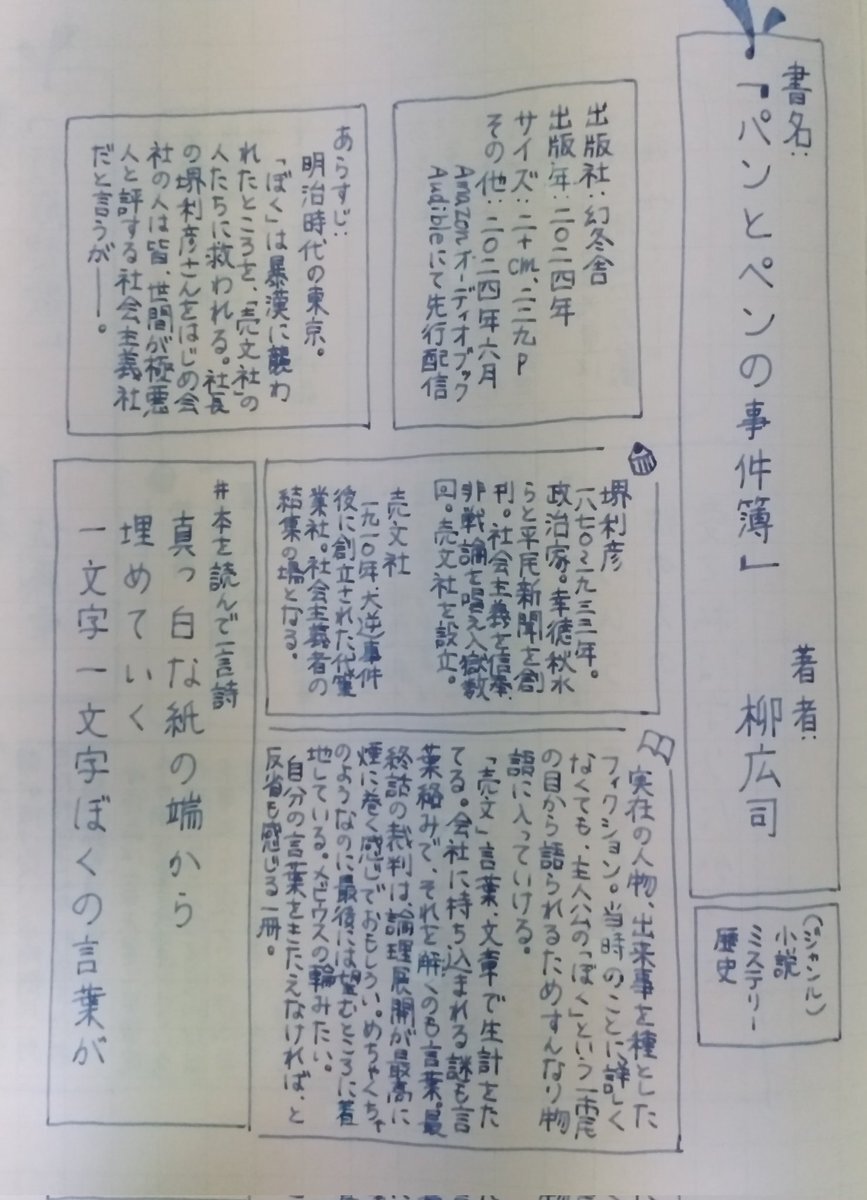 書名:
「パンとペンの事件簿」
著者:
柳広司
(ジャンル)
小説
ミステリー
歴史
出版社:幻冬舎
出版年:二〇二四年
サイズ:二十cm、二三九p
その他:二〇二四年六月
Amazonオーディオブック
Audibleにて先行配信
あらすじ:
明治時代の東京。
「ぼく」は暴漢に襲わ
れたところを、「売文社」の
人たちに救われる。社長
の堺利彦さんをはじめ会
社の人は皆、世間が極悪
人と評する社会主義社
だと言うが――。
堺利彦
一八七〇~一九三三年。
政治家。幸徳秋水
らと平民新聞を創
刊。社会主義を信奉、
非戦論を唱え入獄数
回。売文社を設立。
売文社
一九一〇年、大逆事件
後に創立された代筆
業社。社会主義者の
結集の場となる。
実在の人物、出来事を種とした
フィクション。当時のことに詳しく
なくても、主人公の「ぼく」という一市民
の目から語られるためすんなり物
語に入っていける。
「売文」言葉、文章で生計をた
てる。会社に持ち込まれる謎も言
葉絡みで、それを解くのも言葉。最
終話の裁判は、論理展開が最高に
煙に巻く感じでおもしろい。めちゃくちゃ
のようなのに最後には望むところに着
地している。メビウスの輪みたい。
自分の言葉をきたえなければ、と
反省も感じる一冊。
#本を読んで一言詩
真っ白な紙の端から
埋めていく
一文字一文字ぼくの言葉が